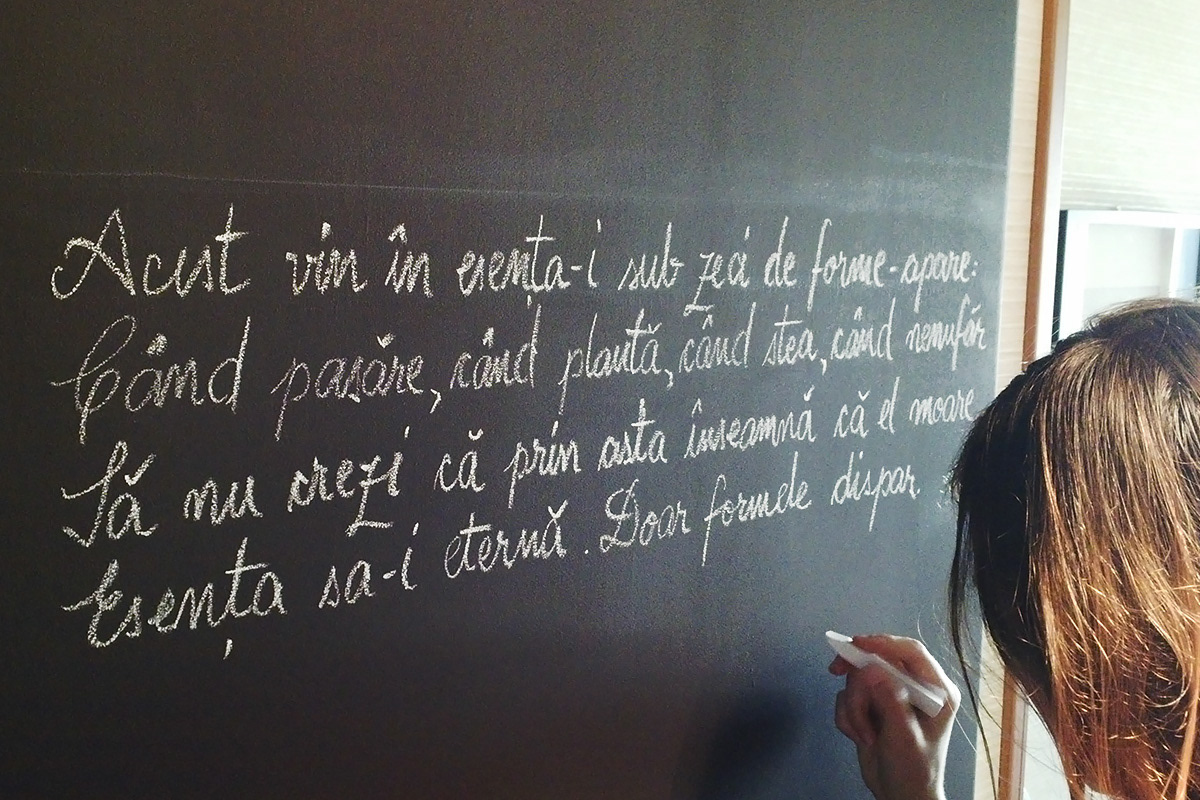 Acest vin în esența-i sub zeci de forme-apare:
Când pasăre, când plantă, când stea, când nenufăr
Să nu crezi că prin asta înseamnă că el moare
Esența sa-i eternă. Doar formele dispar.